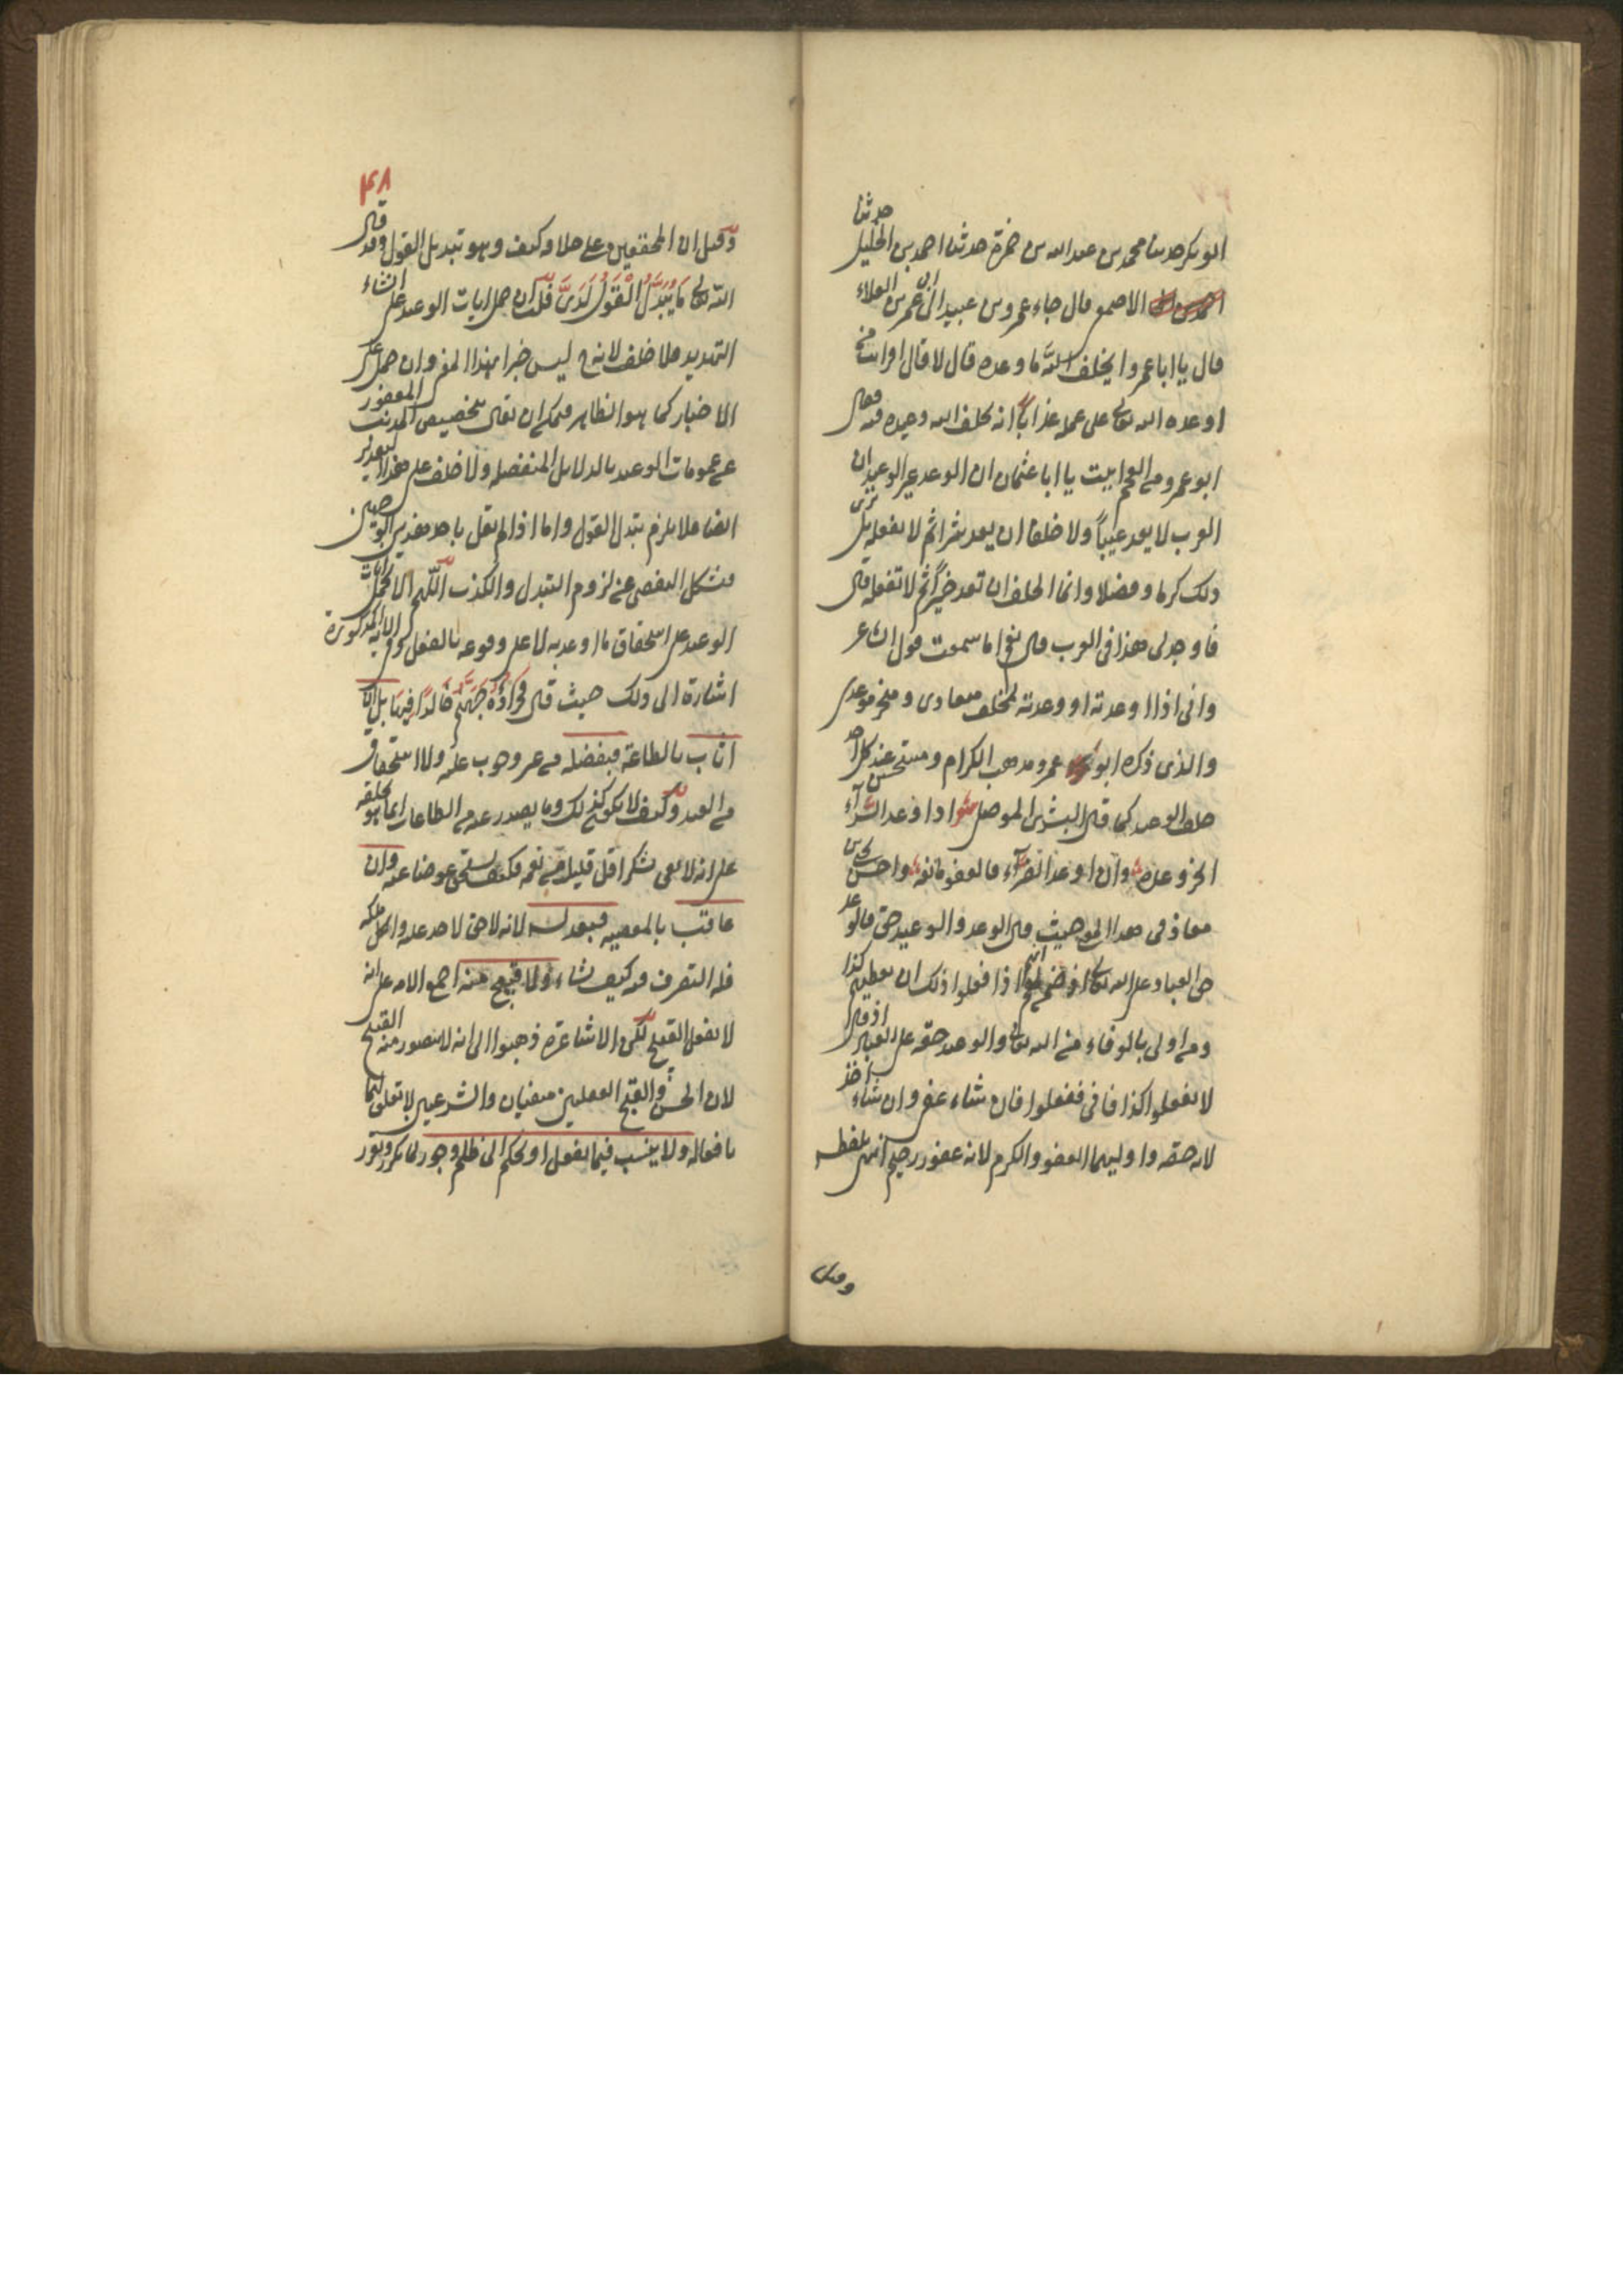 حدثنا
ابو بكر حدثنا محمد بن عبد الله بن حمزة حدثنا احمد بن الخليل
الاصمعى قال جاء عمرو بن عبيد الى ابى عمرو بن العلاء
قال يا ابا عمرو ايخلف الله ما وعده قال لا قال افرايت من
اوعده الله تعالى على عمله عذابا انه يخلف الله وعيده فيه فقال
ابو عمرو من العجم اتيت يا ابا عثمان ان الوعد غير الوعيد ان
العرب لا يعد عيباً ولا خلفا ان يعد شرا ثم لا يفعله بل ترى
ذلك كرما وفضلا وانما الخلف ان تعد خيراً ثم لا تفعله قال
فاوجد لى هذا فى العرب قال نعم اما سمعت قول الشاعر
وانى اذا اوعدته او وعدته لمخلف ميعادى ومنجز موعدى
والذى ذكره ابو عمرو مذهب الكرام ومستحسن عند كل احد
خلف الوعيد كما قال السرى الموصلى شعر اذا وعد السرآء
انجز وعده وان اوعد الضرآء فالعفو مانعه واحسن يحيى بن
معاذ فى هذا المعنى حيث قال الوعد والوعيد حق فالوعد
حق العباد على الله تعالى اذ ضمن لهم انهم اذا فعلوا ذلك ان يعطيهم كذا
ومن اولى بالوفاء من الله تعالى والوعيد حقه على العباد اذ قال
لا تفعلوا كذا فانى ففعلوا فان شاء عفى وان شاء اخذ
لانه حقه واوليهما العفو والكرم لانه غفور رحيم انتهى بلفظه
وقيل
٤٨
وقيل ان المحققين على خلافه كيف وهو تبديل القول وقد قال
الله تعالى مَا يُبَدَّلُ الْقَوْلُ لَدَىَّ قلت ان حمل ايات الوعيد على انشاء
التهديد فلا خلف لانه ح ليس خبرا بهذا المعنى وان حمل على
الاخبار كما هو الظاهر فيمكن ان يقال بتخصيص المذنب المغفور
عن عمومات الوعيد بالدلايل المنفصله ولا خلف على هذا التقدير
ايضا فلا يلزم تبدل القول واما اذا لم نقل باحد هذين الوجهين
فيشكل التفصى عن لزوم التبدل والكذب اللهم الا ان نحمل ايات
الوعيد على استحقاق ما اوعد به لا على وقوعه بالفعل وفى الاية المذكورة
اشارة الى ذلك حيث قال فَجَزَاؤُهُ جَهَنَّمُ خَالِدًا فِيهَا بل ان
اثاب بالطاعة فبفضله من غير وجوب عليه ولا استحقاق
من العبد وكيف لا يكون كذلك وما يصدر عنه من الطاعات انما هو بخلقه
على انه لا يفى شكر اقل قليل من نعمه فكيف يستحق عوضا عنه وان
عاقب بالمعصيه فبعدله لانه لا حق لاحد عليه والكل ملكه
فله التصرف فيه كيف شاء ولا قبيح منه اجمع الامة على انه
لا يفعل القبيح لكن الاشاعرة ذهبوا الى انه لا يتصور منه القبيح
لان الحسن والقبح العقليين منفيان والشرعيين لا تعلق لهما
بافعاله ولا ينسب فيما يفعل او يحكم الى ظلم وجور لما تكرر وتقرر